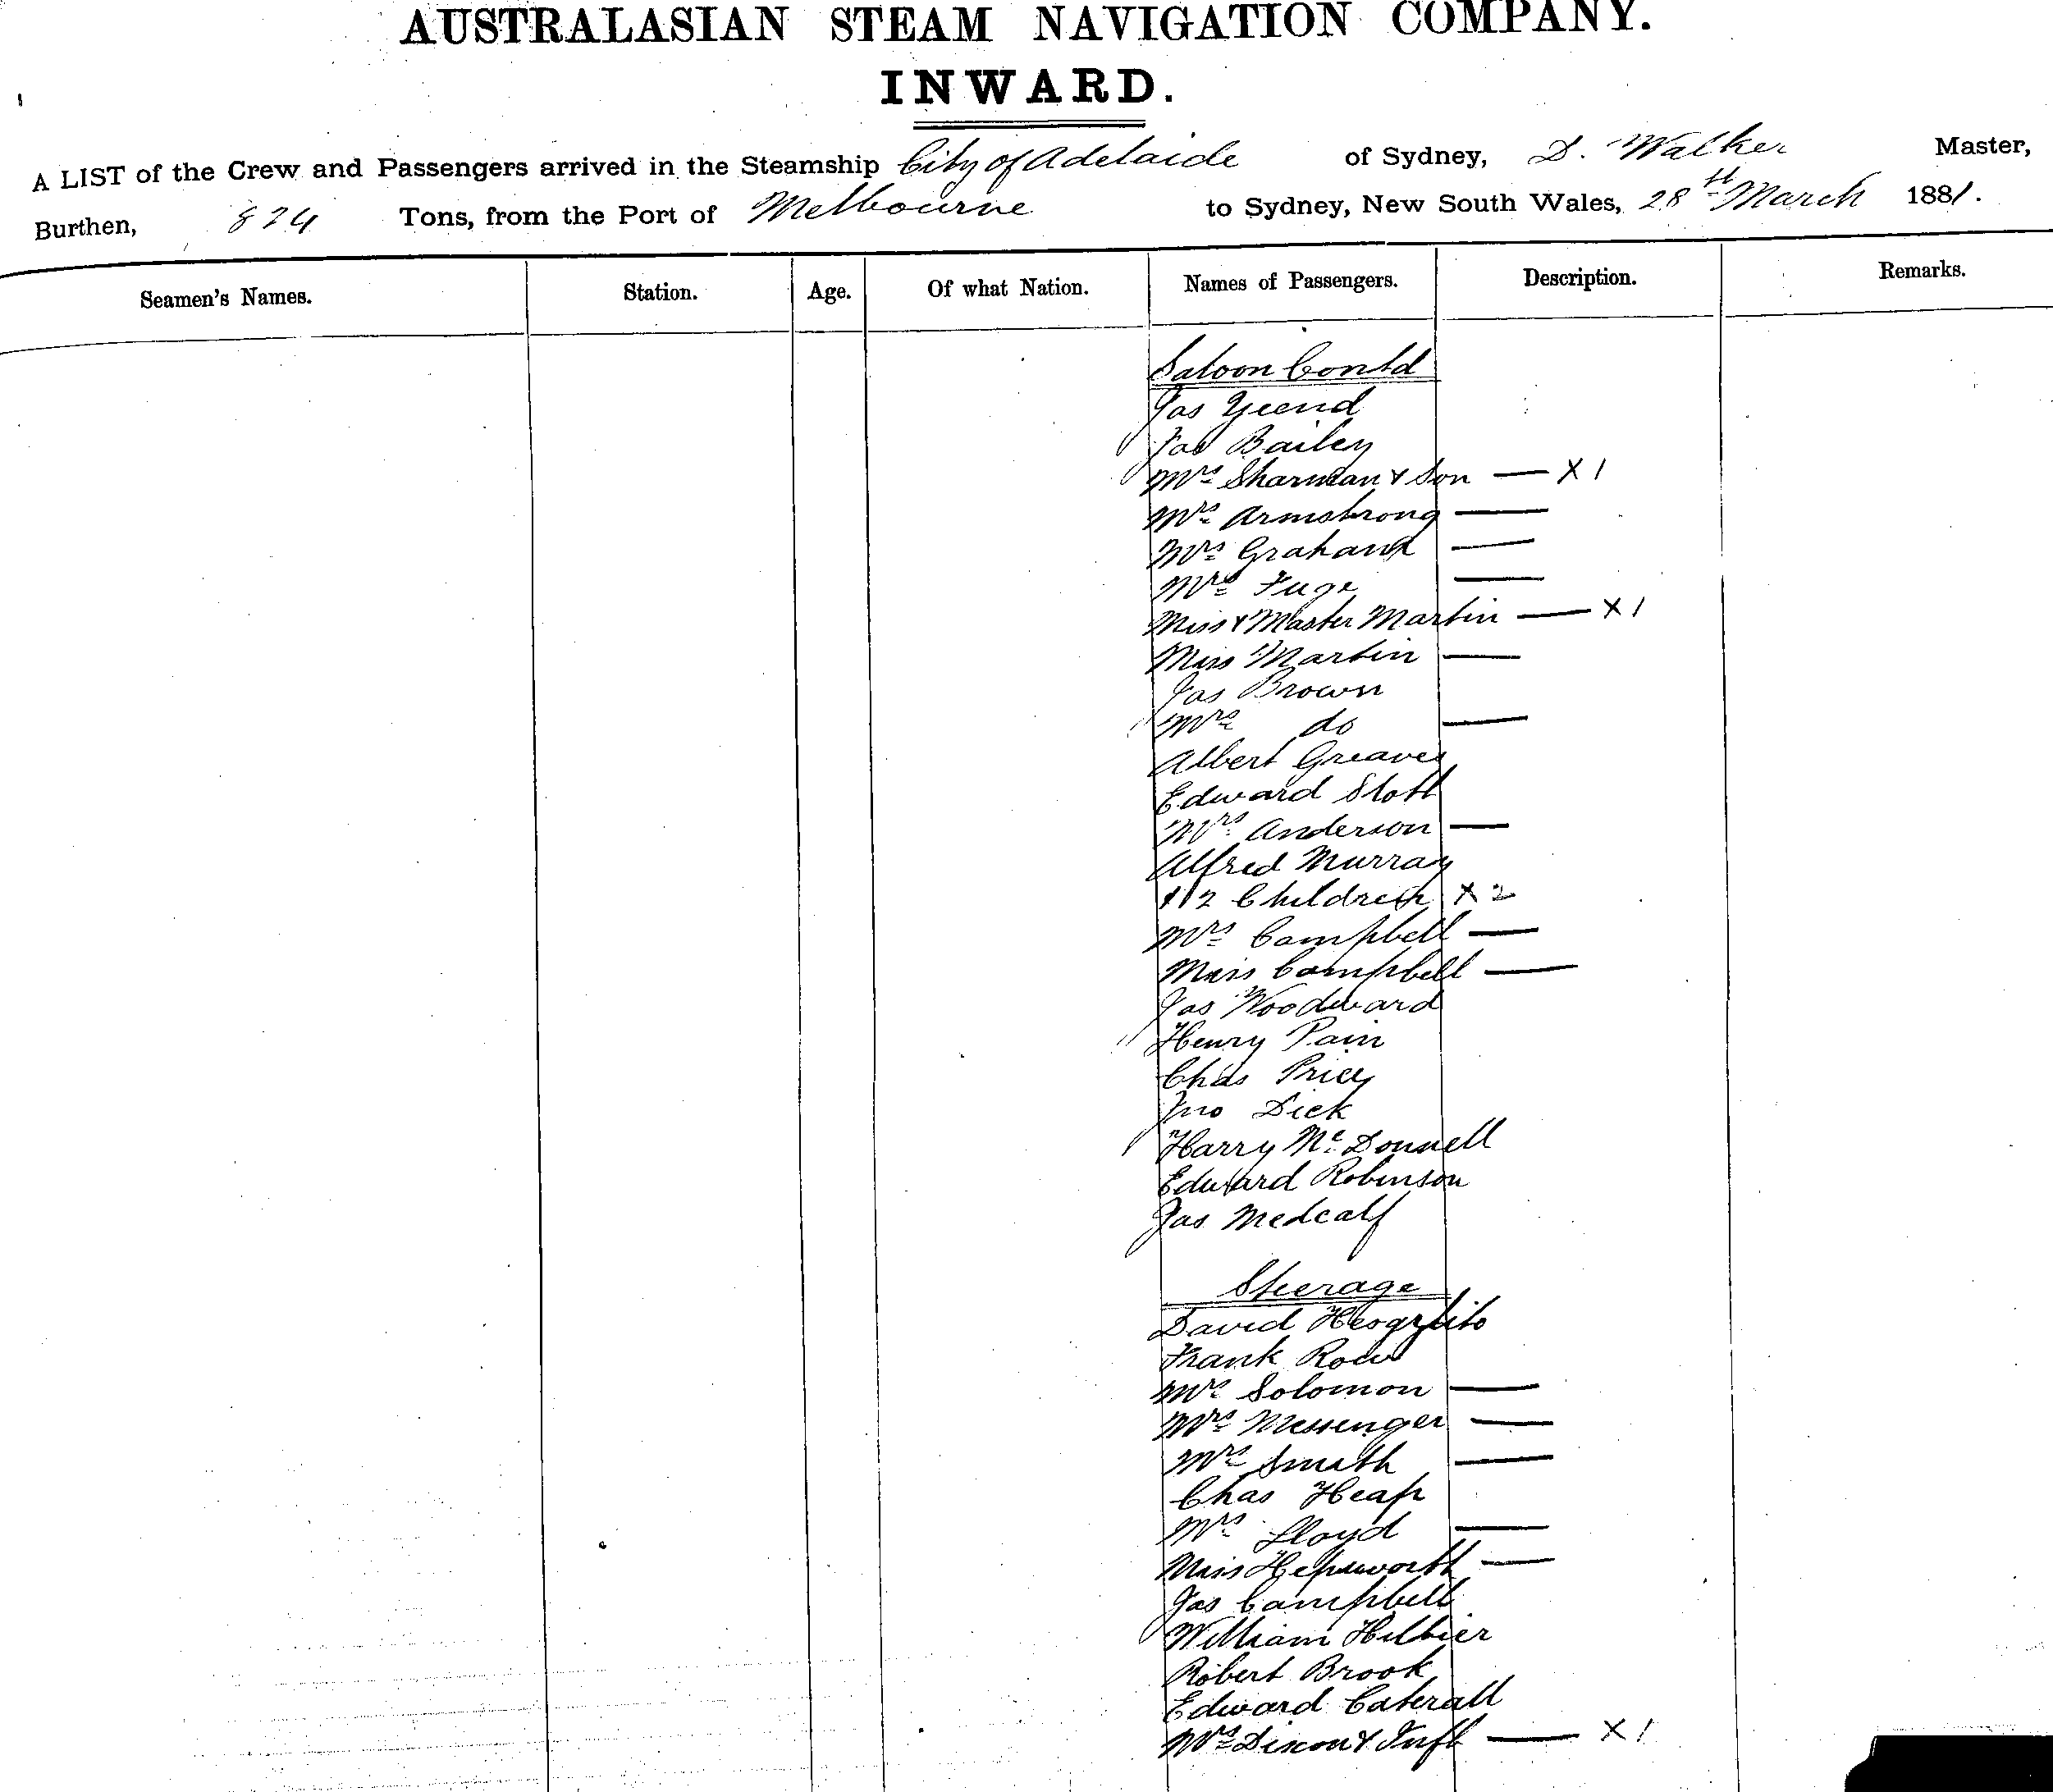 AUSTRALASIAN STEAM NAVIGATION COMPANY.
INWARD.
A LIST of the Crew and Passengers arrived in the Steamship City of Adelaide of Sydney, D. Walker Master,
Burthen, 824 Tons, from the Port of Melbourne to Sydney, New South Wales, 28th March 1881.
Seamen's Names. Station. Age. Of what Nation. Names of Passengers. Description. Remarks.
Saloon Contd
Jas Yeend
Jas Bailey
Mrs Sharman & Son — X 1
Mrs Armstrong —
Mrs Graham —
Mrs Fuge —
Miss & Master Martin — X 1
Miss Martin —
Jas Brown
Mrs do —
Albert Greaves
Edward Stott
Mrs Anderson —
Alfred Murray
& 2 Children X 2
Mrs Campbell —
Miss Campbell —
Jas Woodward
Henry Pain
Chas Price
Jno Dick
Harry McDonnell
Edward Robinson
Jas Medcalf
Steerage
David
Frank Rowe
Mrs Solomon —
Mrs Messenger —
Mrs Smith —
Chas Heap
Mrs Lloyd —
Miss Hepworth —
Jas Campbell
William Hillier
Robert Brook
Edward Caterall
Mrs Dixon & Inft — X 1